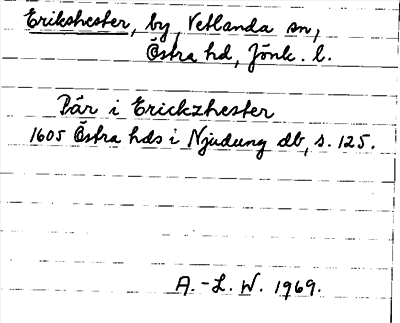 Erikshester, by, Vetlanda sn,
Östra hd, Jönk. l.
Pär i Erickzhester
1605 Östra hds i Njudung db, s. 125.
A.-L. W. 1969.